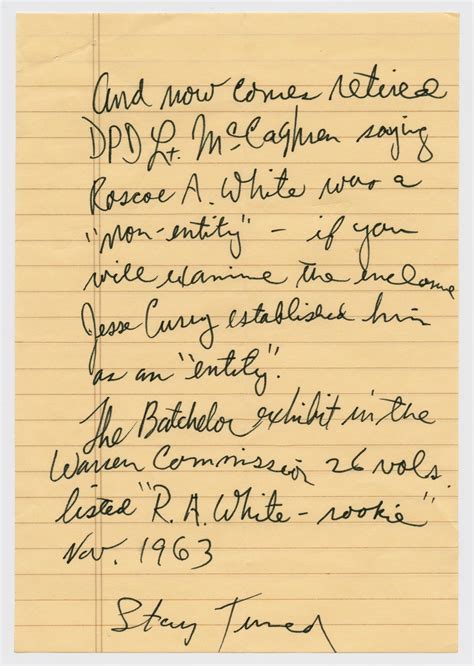 And now comes retired
DPD Lt. McCaghren saying
Roscoe A. White was a
"non-entity" – if you
will examine the enclosure
Jesse Curry established him
as an "entity".
The Batchelor exhibit in the
Warren Commission 26 vols.
listed "R. A. White – rookie"
Nov. 1963
Stay Tuned